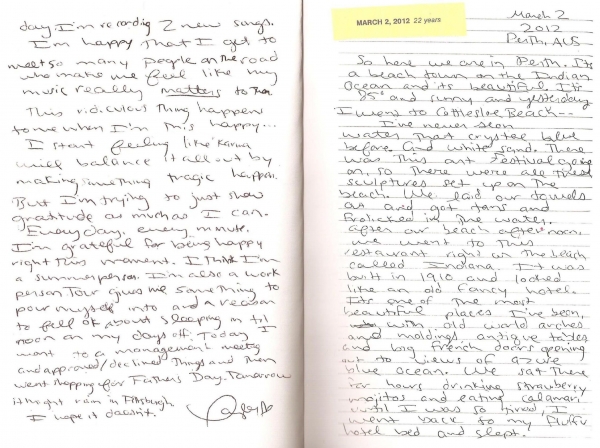 day. I'm recording 2 new songs.
I'm happy that I get to
meet so many people on the road
who make me feel like my
music really matters to them.
This ridiculous thing happens
to me when I'm this happy...
I start feeling like karma
will balance it all out by
making something tragic happen.
But I'm trying to just show
gratitude as much as I can.
Every day, every minute.
I'm grateful for being happy
right this moment. I think I'm
a summer person. I'm also a work
person. Tour gives me something to
pour myself into and a reason
to feel ok about sleeping in til
noon on my days off. Today I
went to a management meeting
and approved/declined things and then
went shopping for Fathers Day. Tomorrow
it might rain in Pittsburgh.
I hope it doesn't.
MARCH 2, 2012 22 years
March 2
2012
Perth, AUS
So here we are in Perth. It's
a beach town on the Indian
Ocean and its beautiful. It's
85° and sunny and yesterday
I went to Cottesloe Beach--
I've never seen
water that crystal blue
before. And white sand. There
was this art festival going
on, so there were all these
sculptures set up on the
beach. We laid our towels
out and got tans and
frolicked in the water.
After our beach afternoon,
we went to this
restaurant right on the beach
called Indiana. It was
built in 1910 and looked
like an old fancy hotel.
Its one of the most
beautiful places I've been,
with old world arches
and moldings, antique tables
and big French doors opening
out to views of azure
blue ocean. We sat there
for hours drinking strawberry
mojitos and eating calamari
until I was so tired, I
went back to my fluffy
hotel bed and slept.